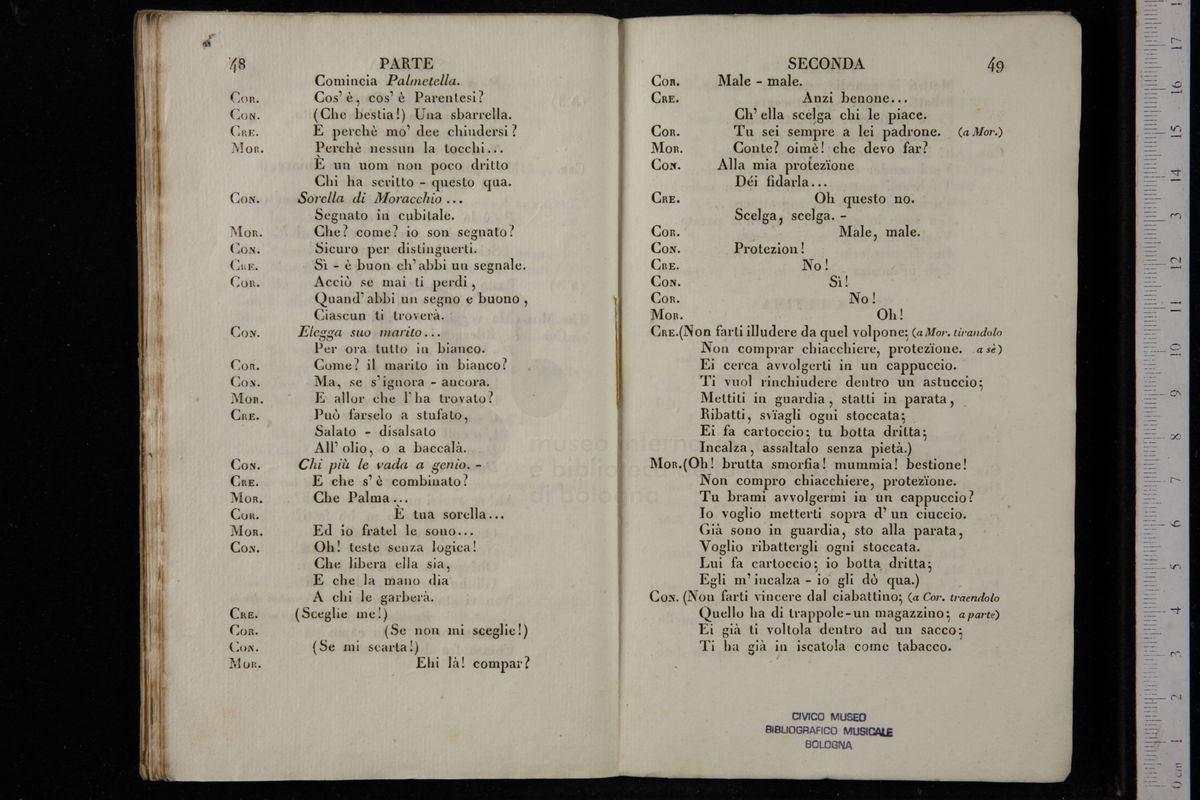 48 PARTE
Comincia Palmetella.
Cor. Cos' è, cos' è Parentesi?
Con. (Che bestia!) Una sbarrella.
Cre. E perchè mo' dee chiudersi?
Mor. Perchè nessun la tocchi...
È un uom non poco dritto
Chi ha scritto - questo qua.
Con. Sorella di Moracchio ...
Segnato in cubitale.
Mor. Che? come? io son segnato?
Con. Sicuro per distinguerti.
Cre. Sì - è buon ch' abbi un segnale.
Cor. Acciò se mai ti perdi,
Quand' abbi un segno e buono,
Ciascun ti troverà.
Con. Elegga suo marito...
Per ora tutto in bianco.
Cor. Come? il marito in bianco?
Con. Ma, se s' ignora - ancora.
Mor. E allor che l' ha trovato?
Cre. Può farselo a stufato,
Salato - disalsato
All' olio, o a baccalà.
Con. Chi più le vada a genio. -
Cre. E che s' è combinato?
Mor. Che Palma...
Cor. È tua sorella...
Mor. Ed io fratel le sono...
Con. Oh! teste senza logica!
Che libera ella sia,
E che la mano dia
A chi le garberà.
Cre. (Sceglie me!)
Cor. (Se non mi sceglie!)
Con. (Se mi scarta!)
Mor. Ehi là! compar?
SECONDA 49
Cor. Male - male.
Cre. Anzi benone...
Ch' ella scelga chi le piace.
Cor. Tu sei sempre a lei padrone. (a Mor.)
Mor. Conte? oimè! che devo far?
Con. Alla mia protezïone
Déi fidarla...
Cre. Oh questo no.
Scelga, scelga. -
Cor. Male, male.
Con. Protezion!
Cre. No!
Con. Sì!
Cor. No!
Mor. Oh!
Cre. (Non farti illudere da quel volpone; (a Mor. tirandolo
Non comprar chiacchiere, protezïone. a sè)
Ei cerca avvolgerti in un cappuccio.
Ti vuol rinchiudere dentro un astuccio;
Mettiti in guardia, statti in parata,
Ribatti, svïagli ogni stoccata;
Ei fa cartoccio; tu botta dritta;
Incalza, assaltalo senza pietà.)
Mor. (Oh! brutta smorfia! mummia! bestione!
Non compro chiacchiere, protezïone.
Tu brami avvolgermi in un cappuccio?
Io voglio metterti sopra d' un ciuccio.
Già sono in guardia, sto alla parata,
Voglio ribattergli ogni stoccata.
Lui fa cartoccio; io botta dritta;
Egli m' incalza - io gli dò qua.)
Con. (Non farti vincere dal ciabattino; (a Cor. traendolo
Quello ha di trappole - un magazzino; a parte)
Ei già ti voltola dentro ad un sacco;
Ti ha già in iscatola come tabacco.
CIVICO MUSEO
BIBLIOGRAFICO MUSICALE
BOLOGNA